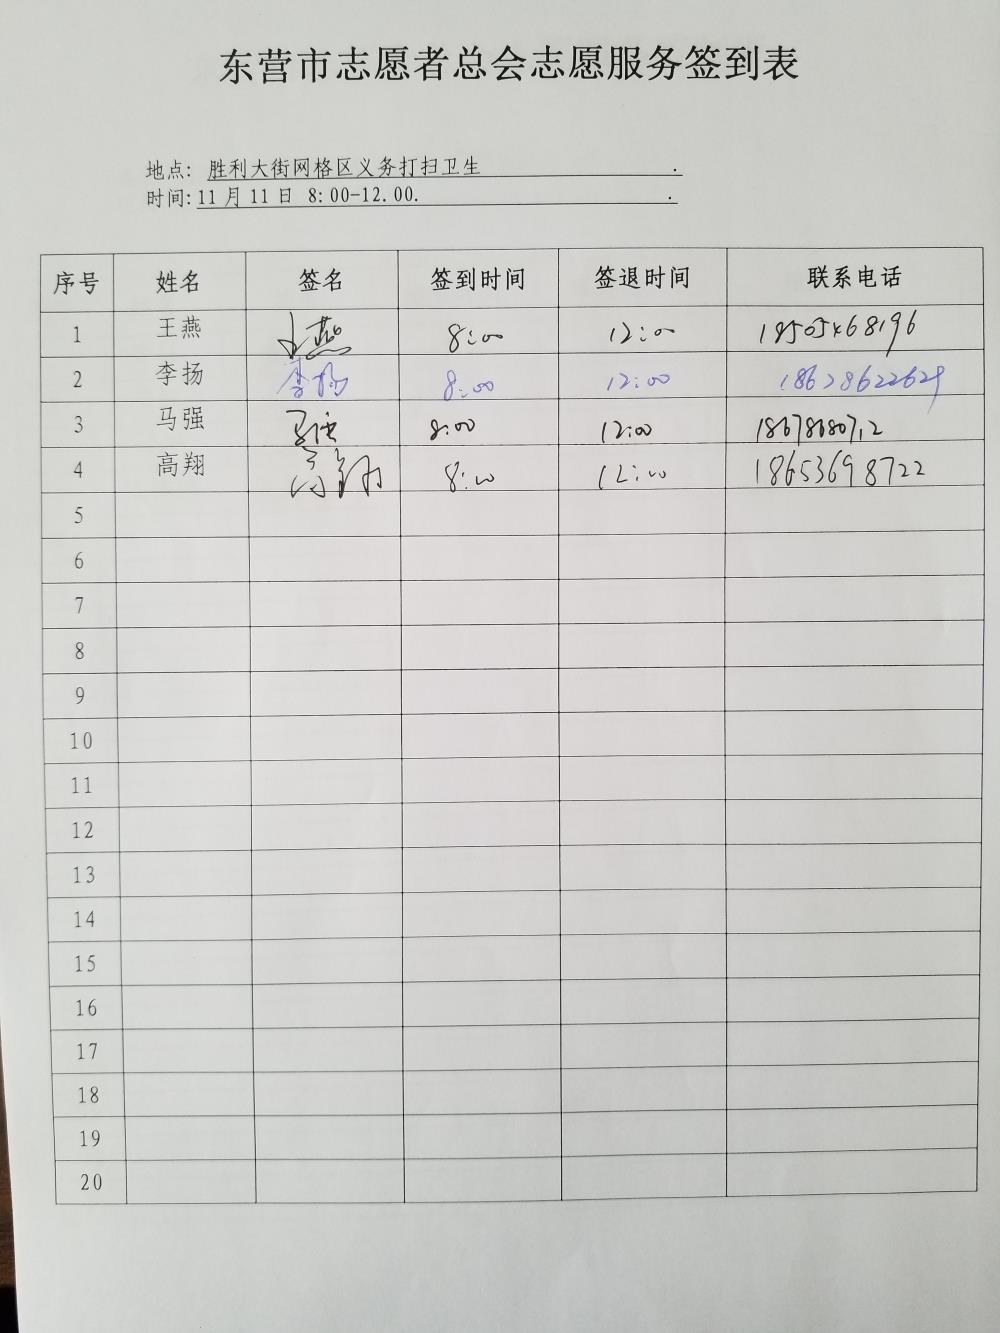 东营市志愿者总会志愿服务签到表
地点: 胜利大街网格区义务打扫卫生 .
时间: 11月11日 8:00-12.00. .
序号 姓名 签名 签到时间 签退时间 联系电话
1 王燕 王燕 8:00 12:00
2 李扬 李扬 8:00 12:00 18628622629
3 马强 马强 8:00 12:00
4 高翔 高翔 8:00 12:00 18653698722
5
6
7
8
9
10
11
12
13
14
15
16
17
18
19
20